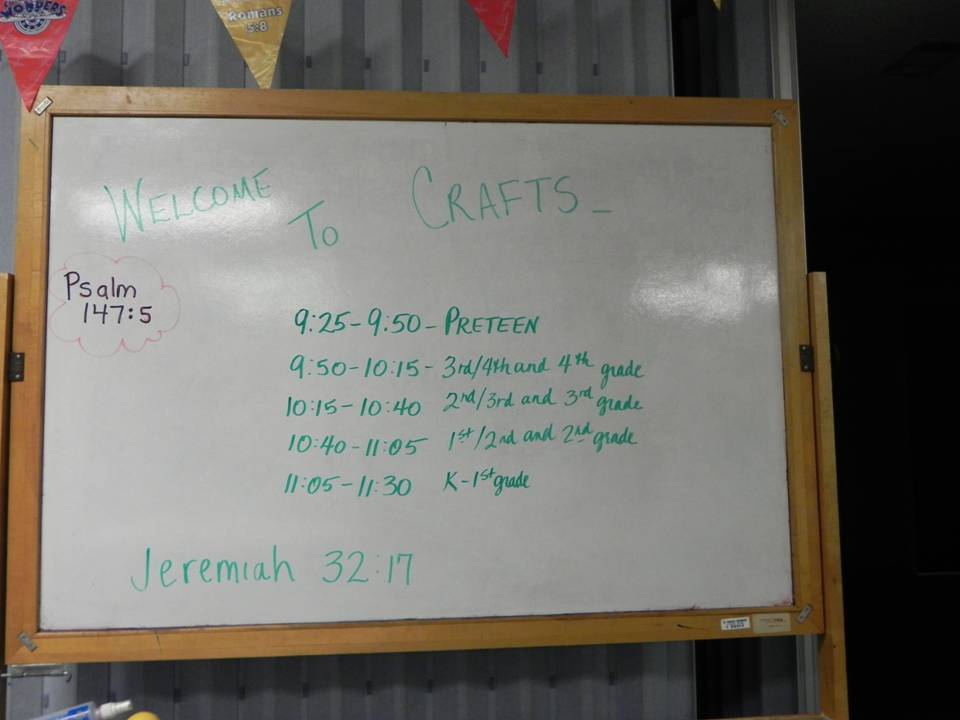 WONDERS
Romans
5:8
WELCOME TO CRAFTS
Psalm
147:5
9:25-9:50- PRETEEN
9:50-10:15- 3rd/4th and 4th grade
10:15-10:40 2nd/3rd and 3rd grade
10:40-11:05 1st/2nd and 2nd grade
11:05-11:30 K-1st grade
Jeremiah 32:17